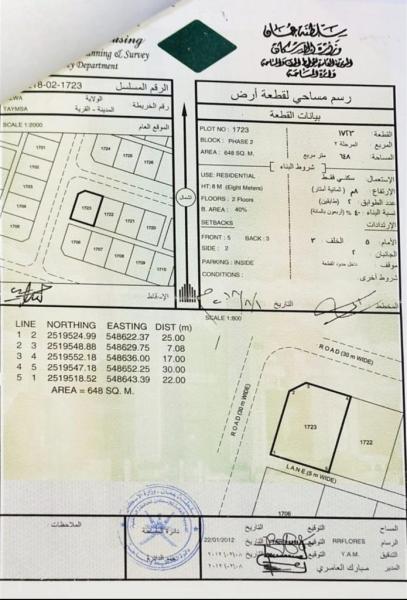 سلطنة عمان
وزارة الإسكان
using
nning & Survey
y Department
18-02-1723
الرقم المسلسل
ZWA
الولاية
TAYMSA
المدينة - القرية
رقم الخريطة
SCALE 1:2000
الموقع العام
رسم مساحي لقطعة أرض
بيانات القطعة
PLOT NO : 1723
القطعة : ١٧٢٣
BLOCK : PHASE 2
المربع : المرحلة ٢
AREA : 648 SQ. M.
المساحة : ٦٤٨ متر مربع
شروط البناء
USE: RESIDENTIAL
الإستعمال: سكني فقط
HT: 8 M (Eight Meters)
الإرتفاع ٨م (ثمانية أمتار)
FLOORS : 2 Floors
عدد الطوابق: ٢ (طابقين)
B. AREA : 40%
نسبة البناء: ٤٠% (أربعون بالمائة)
SETBACKS
الإرتدادات
FRONT : 5 BACK : 3
الأمام ٥ الخلف ٣
SIDE : 2
الجانبان ٢
PARKING : INSIDE
موقف : داخل حدود القطعة
CONDITIONS :
شروط أخرى
الشمال
1726
1725
1724
1723
1722
1721
1720
1706
1707
الإسقاط
التاريخ
المخطط
SCALE 1:800
LINE NORTHING EASTING DIST (m)
1 2 2519524.99 548622.37 25.00
2 3 2519548.88 548629.75 7.08
3 4 2519552.18 548636.00 17.00
4 5 2519547.18 548652.25 30.00
5 1 2519518.52 548643.39 22.00
AREA = 648 SQ. M.
ROAD (30 m WIDE)
ROAD (30 m WIDE)
1723
1722
LANE (8 m WIDE)
1706
الملاحظات
22/01/2012 التاريخ التوقيع RRFLORES المساح
التاريخ التوقيع Y.A.M. الرسام
التاريخ التوقيع التدقيق
التاريخ مبارك العامري المدير